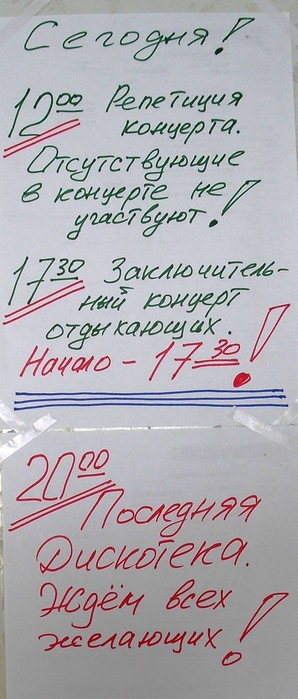 Сегодня!
12⁰⁰ Репетиция
концерта.
Отсутствующие
в концерте не
участвуют!
17³⁰ Заключитель-
ный концерт
отдыхающих.
Начало – 17³⁰!
20⁰⁰
Последняя
Дискотека.
Ждём всех
желающих!